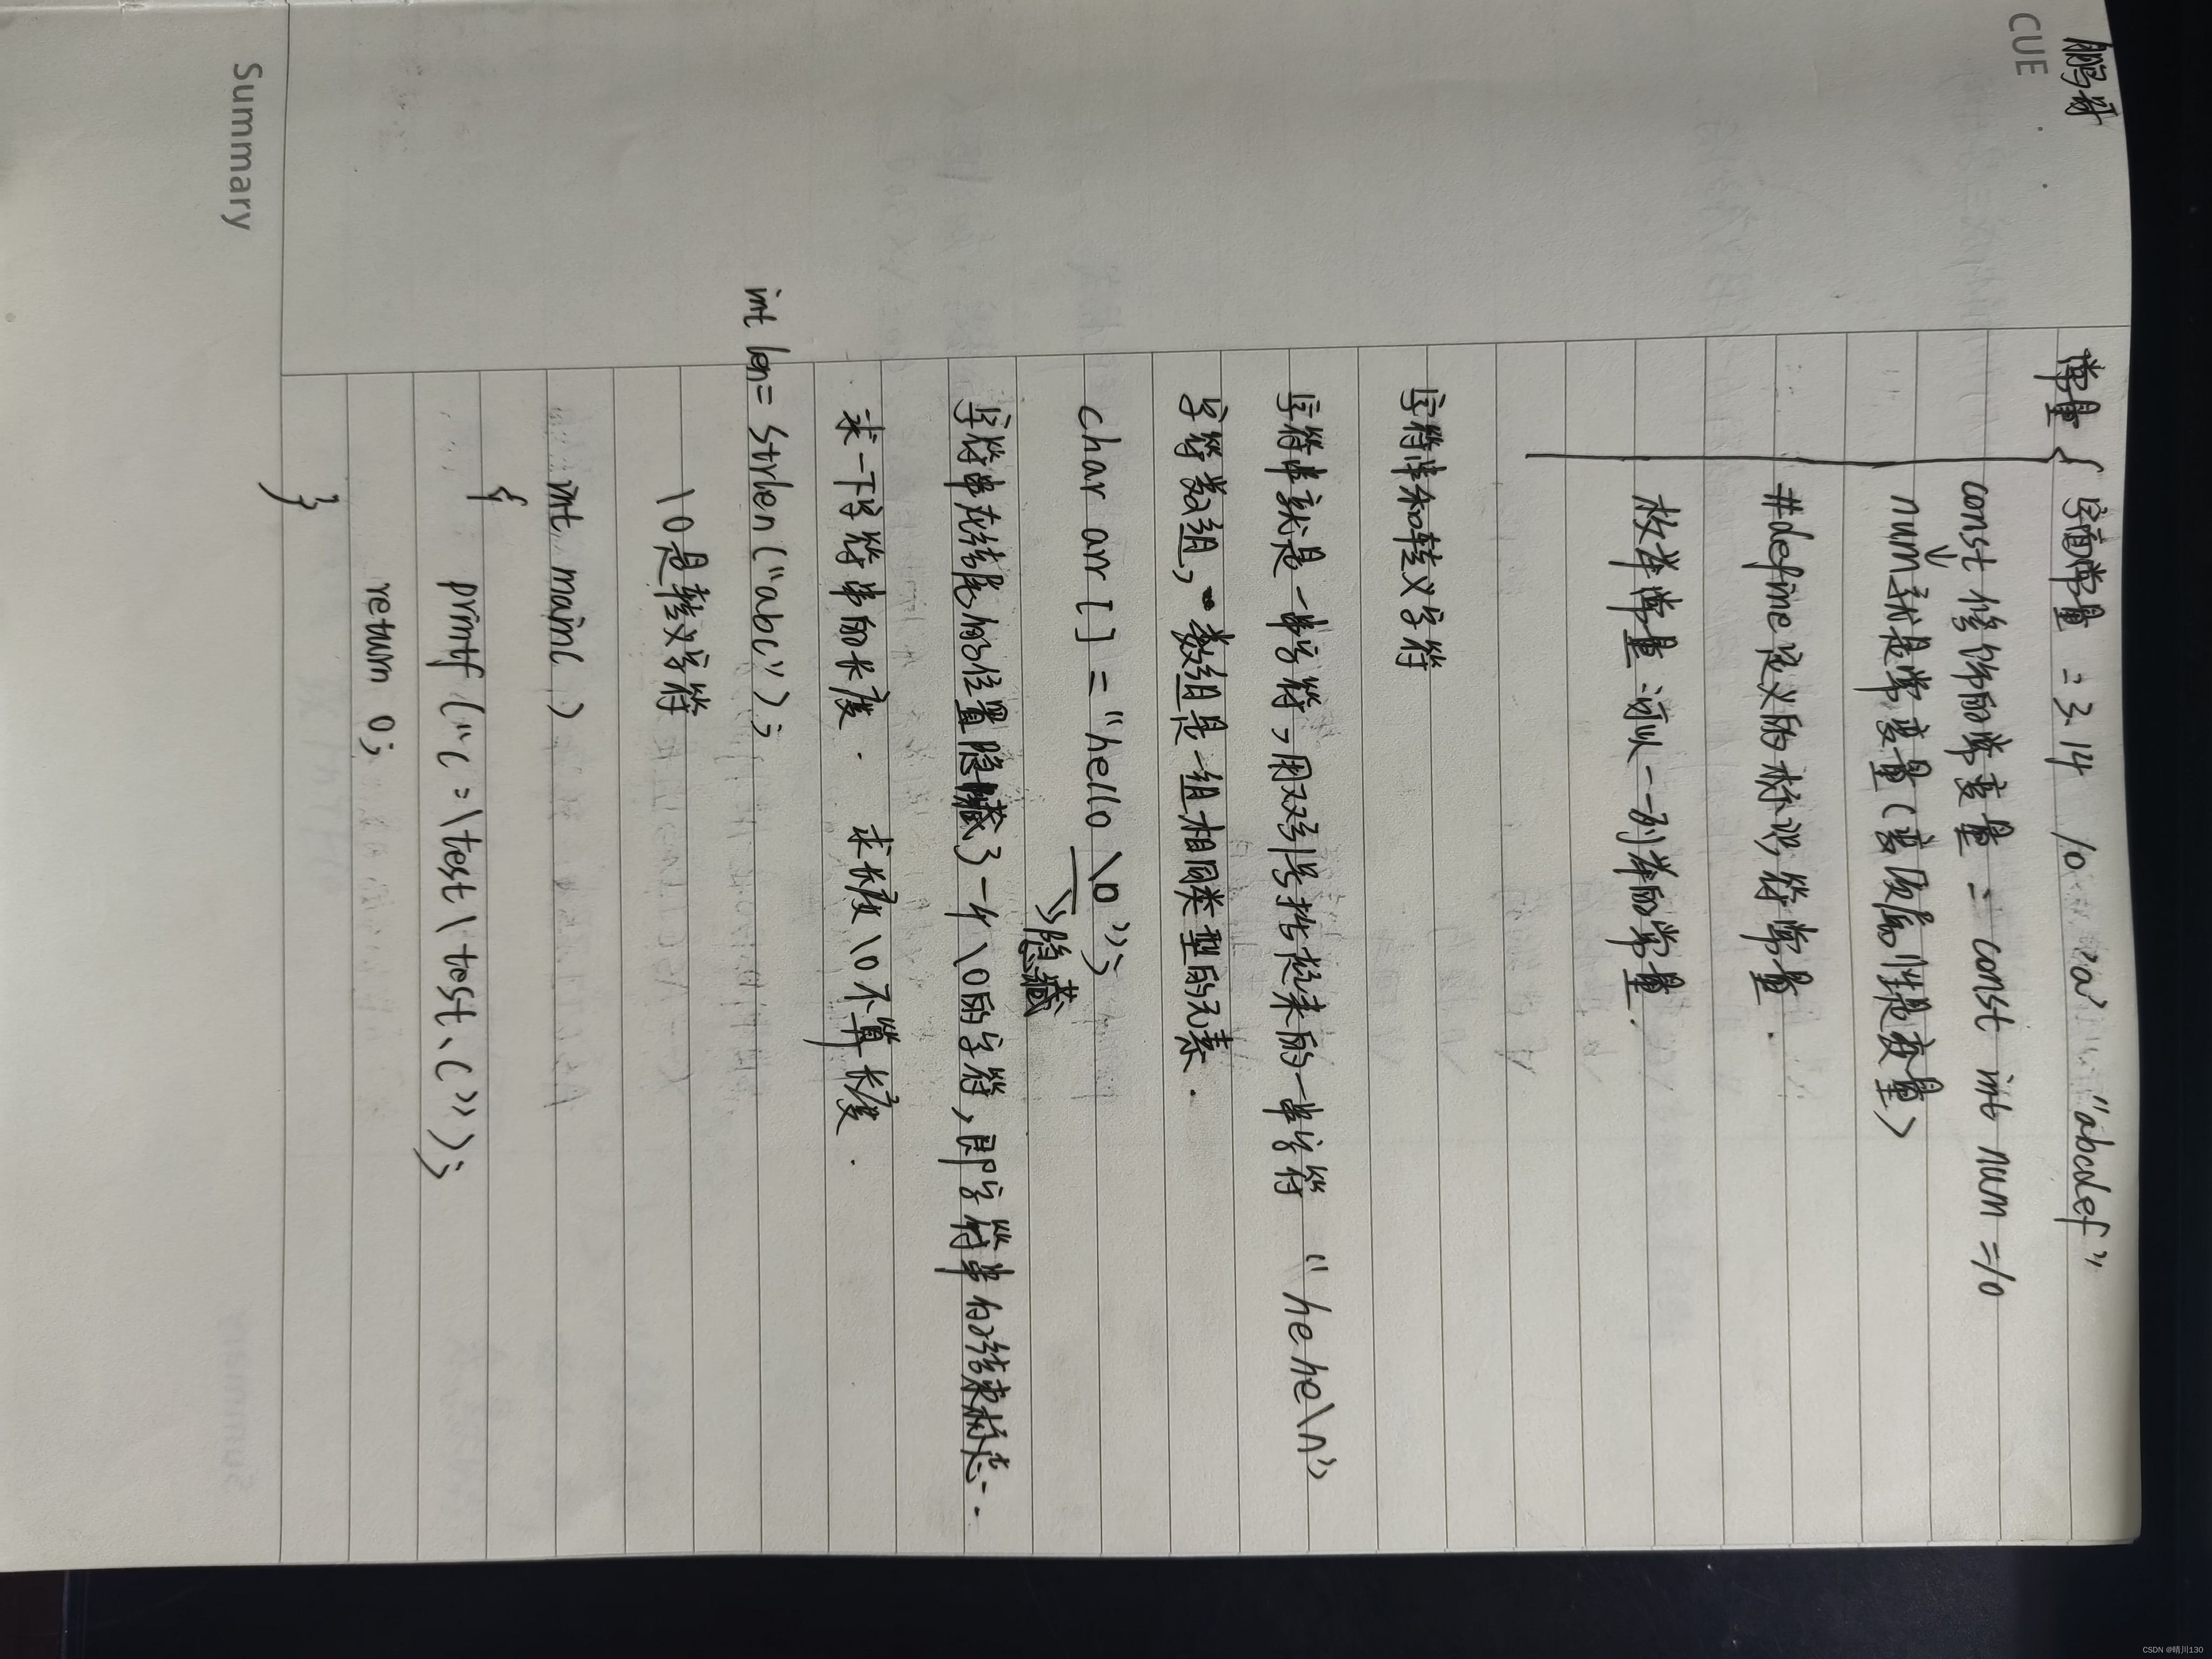 鹏哥
CUE
常量{ 字面常量 = 3.14 10 'a' "abcdef"
const 修饰的常变量 = const int num =10
num就是常变量(变质属性是变量)
#define定义的标识符常量.
枚举常量:可以一一列举的常量.
字符串和转义字符
字符串就是一串字符,用双引号括起来的一串字符 "hehe\n"
字符数组,数组是一组相同类型的元素.
char arr [] = "hello \0";
隐藏
字符串在结尾的位置隐藏了一个\0的字符,即字符串的结束标志.
求一下字符串的长度. 求长度\0不算长度.
int len= strlen("abc");
\0是转义字符
int main( )
{
printf ("c:\test\test.c");
return 0;
}
Summary
CSDN @晴川130